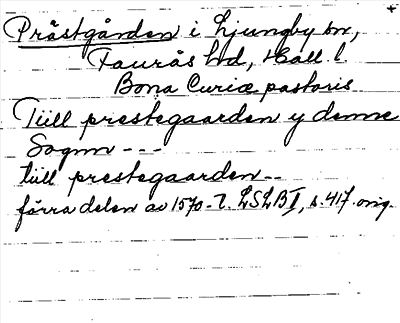 Prästgården i Ljungby sn,
Faurås hd, Hall. l.
Bona Curiæ pastoris
Tiill prestegaarden y denne
Sognn - - -
tiill prestegaarden - -
förra delen av 1570-t. LSLB I, s. 417. orig.